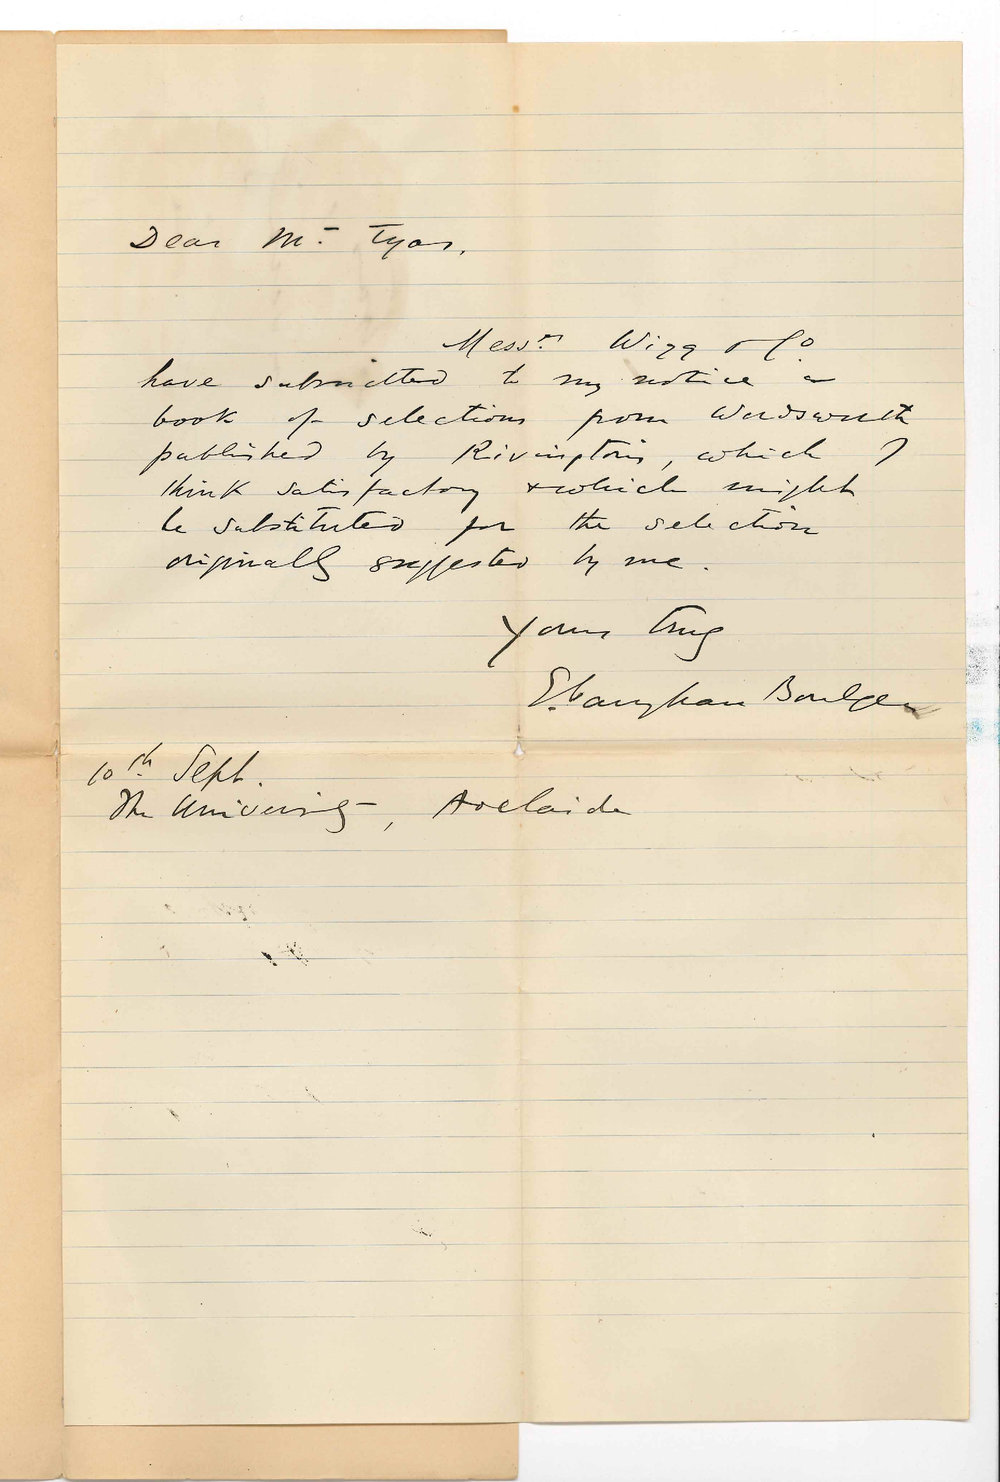 Dear Mr. Tyas,
Messrs Wigg & Co.
have submitted to my notice a
book of selections from Wordsworth
published by Rivingtons, which I
think satisfactory & which might
be substituted for the selection
originally suggested by me.
Yours truly
E. Vaughan Boulger
10th Sept.
The University, Adelaide